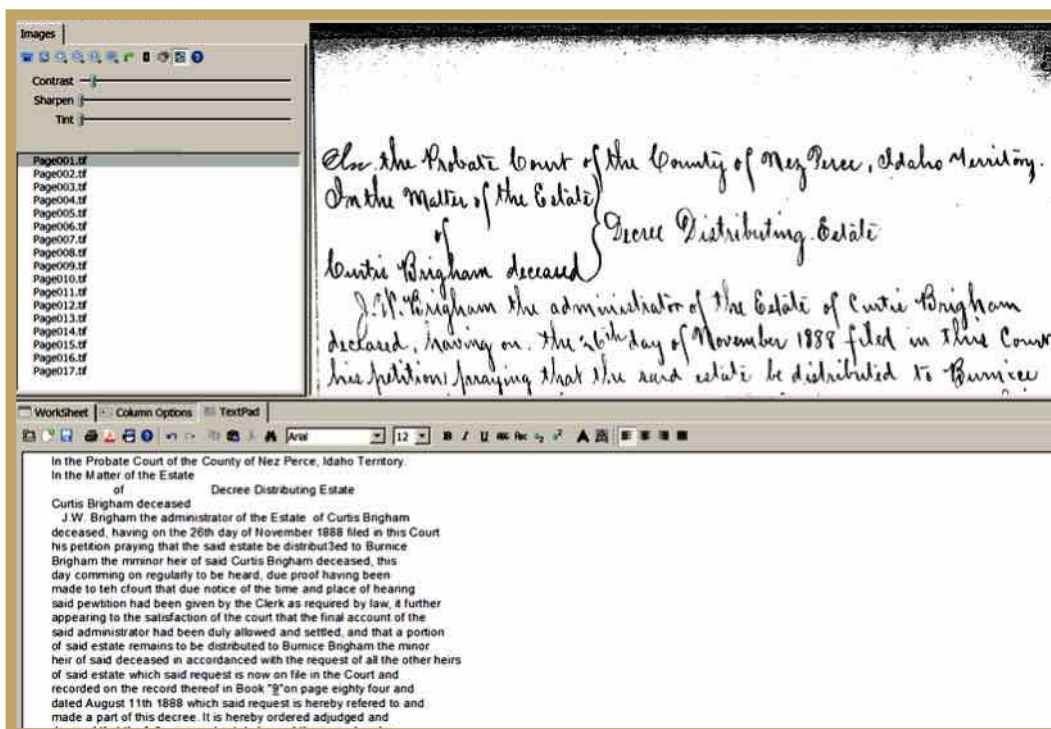 Images
Contrast
Sharpen
Tint
Page001.tif
Page002.tif
Page003.tif
Page004.tif
Page005.tif
Page006.tif
Page007.tif
Page008.tif
Page009.tif
Page010.tif
Page011.tif
Page012.tif
Page013.tif
Page014.tif
Page015.tif
Page016.tif
Page017.tif
In the Probate Court of the County of Nez Perce, Idaho Territory.
In the Matter of the Estate
of
Decree Distributing Estate
Curtis Brigham deceased
J.W. Brigham the administrator of the Estate of Curtis Brigham
deceased, having on the 26th day of November 1888 filed in this Court
his petition praying that the said estate be distributed to Burnice
WorkSheet Column Options TextPad
Arial 12 B I U ABC Abc
In the Probate Court of the County of Nez Perce, Idaho Territory.
In the Matter of the Estate
of Decree Distributing Estate
Curtis Brigham deceased
J.W. Brigham the administrator of the Estate of Curtis Brigham
deceased, having on the 26th day of November 1888 filed in this Court
his petition praying that the said estate be distribut3ed to Burnice
Brigham the mminor heir of said Curtis Brigham deceased, this
day comming on regularly to be heard, due proof having been
made to teh cfourt that due notice of the time and place of hearing
said pewtition had been given by the Clerk as required by law, it further
appearing to the satisfaction of the court that the final account of the
said administrator had been duly allowed and settled, and that a portion
of said estate remains to be distributed to Burnice Brigham the minor
heir of said deceased in accordanced with the request of all the other heirs
of said estate which said request is now on file in the Court and
recorded on the record thereof in Book "9"on page eighty four and
dated August 11th 1888 which said request is hereby refered to and
made a part of this decree. It is hereby ordered adjudged and